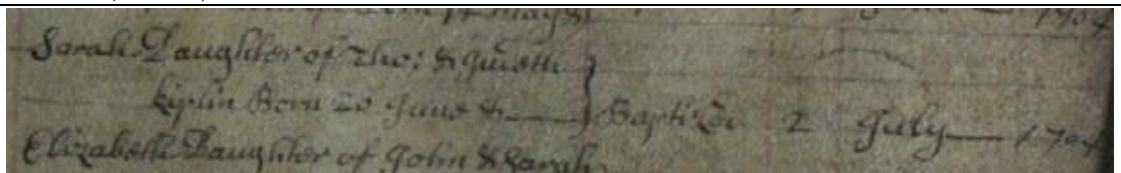 Born 14 May &
1704
Sarah Daughter of Tho: &
Kiplin Born 20 June & Baptized 2 July 1704
Elizabeth Daughter of John & Sarah